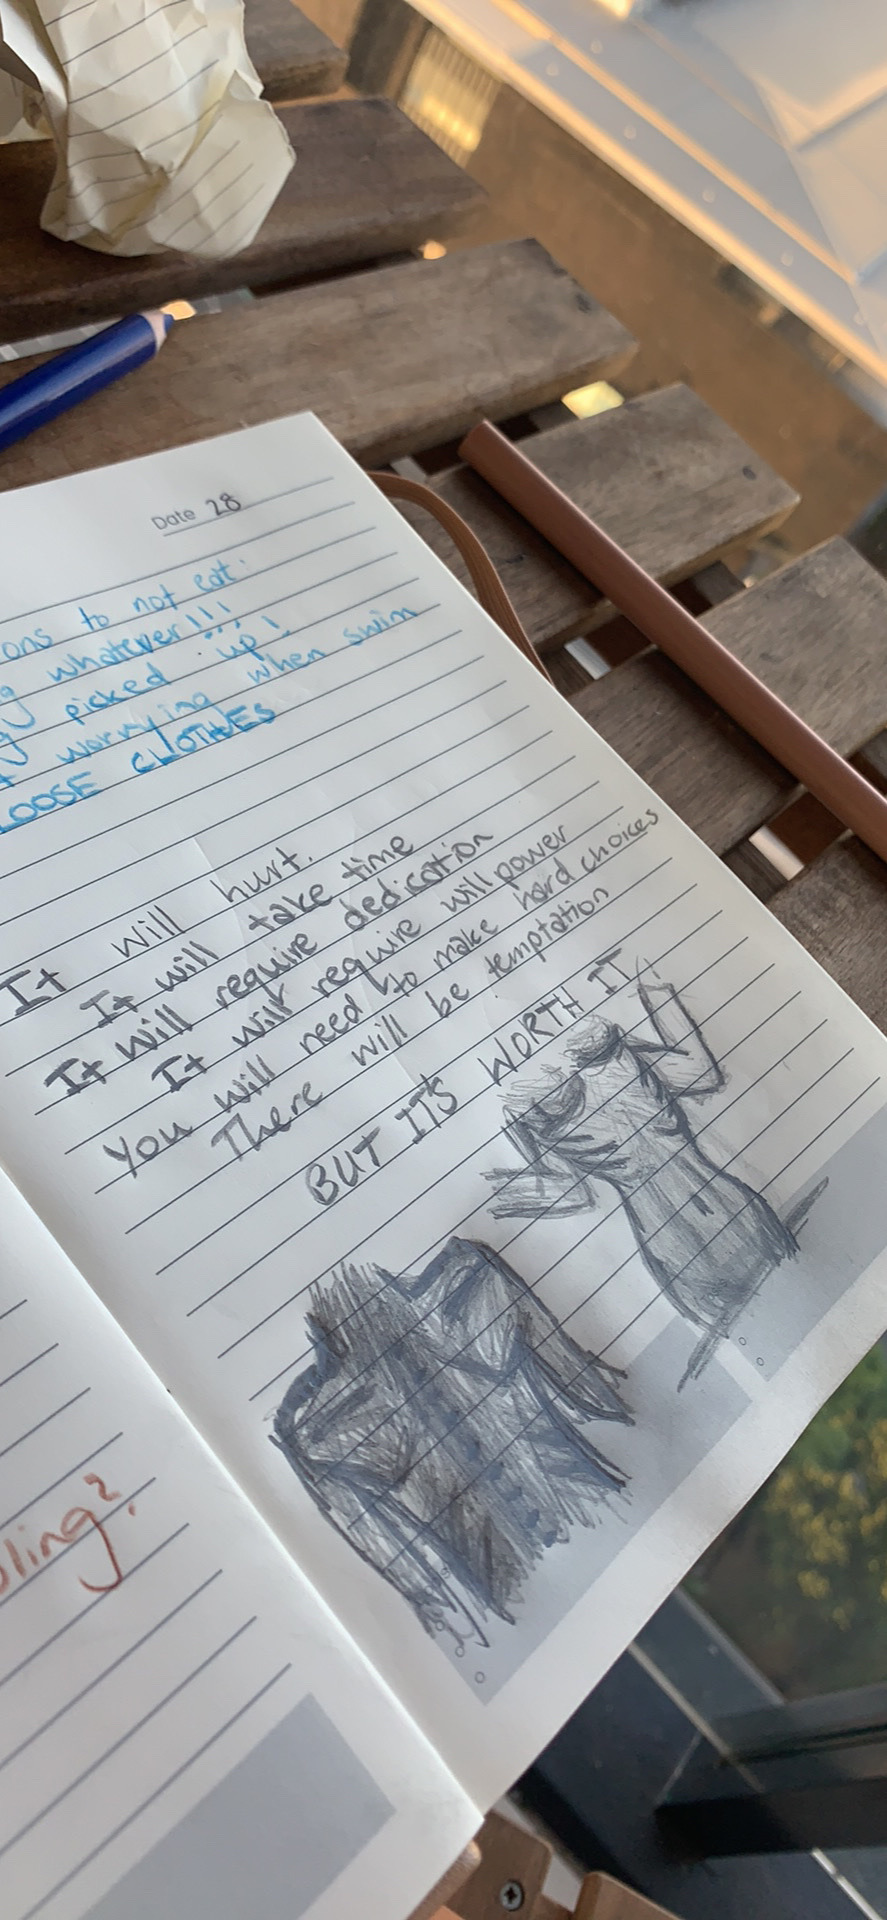 Date 28
ons to not eat:
whatever!!!
picked up!
worrying when swim
LOOSE CLOTHES
It will hurt.
It will take time
It will require dedication
It will require will power
You will need to make hard choices
There will be temptation
BUT IT'S WORTH IT
bling?